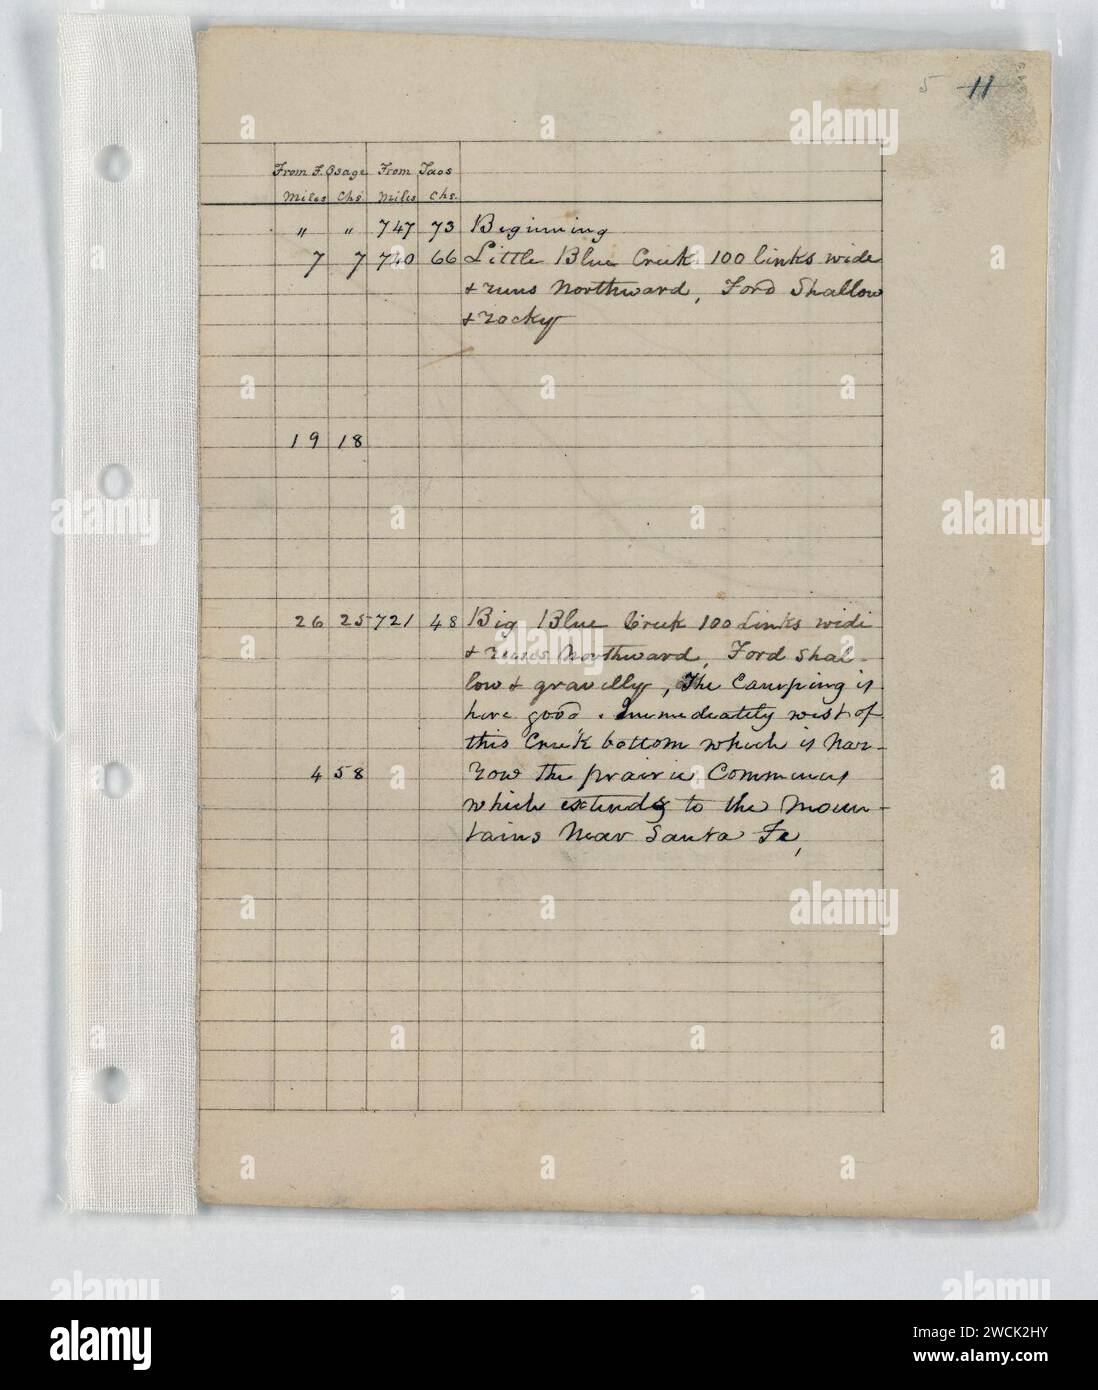 5 11
From F. Osage From Taos
Miles Chs. Miles Chs.
" " 747 73 Beginning
7 7 740 66 Little Blue Creek 100 links wide
& runs Northward, Ford Shallow
& rocky
19 18
26 25 721 48 Big Blue Creek 100 Links wide
& runs Northward, Ford Shal-
low & gravelly, The Camping is
here good. Immediately west of
this Creek bottom which is nar-
4 58 row the prairie Commences
which extends to the Moun-
tains Near Santa Fe,
alamy
Image ID: 2WCK2HY
www.alamy.com